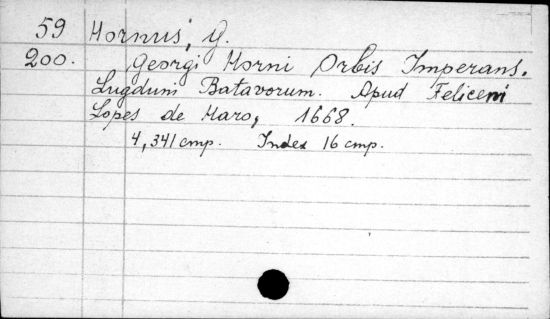 59 Hornus, G.
200. Georgi Horni Orbis Imperans.
Lugduni Batavorum. Apud Felicem
Lopes de Haro, 1668.
4, 341 стр. Index 16 стр.